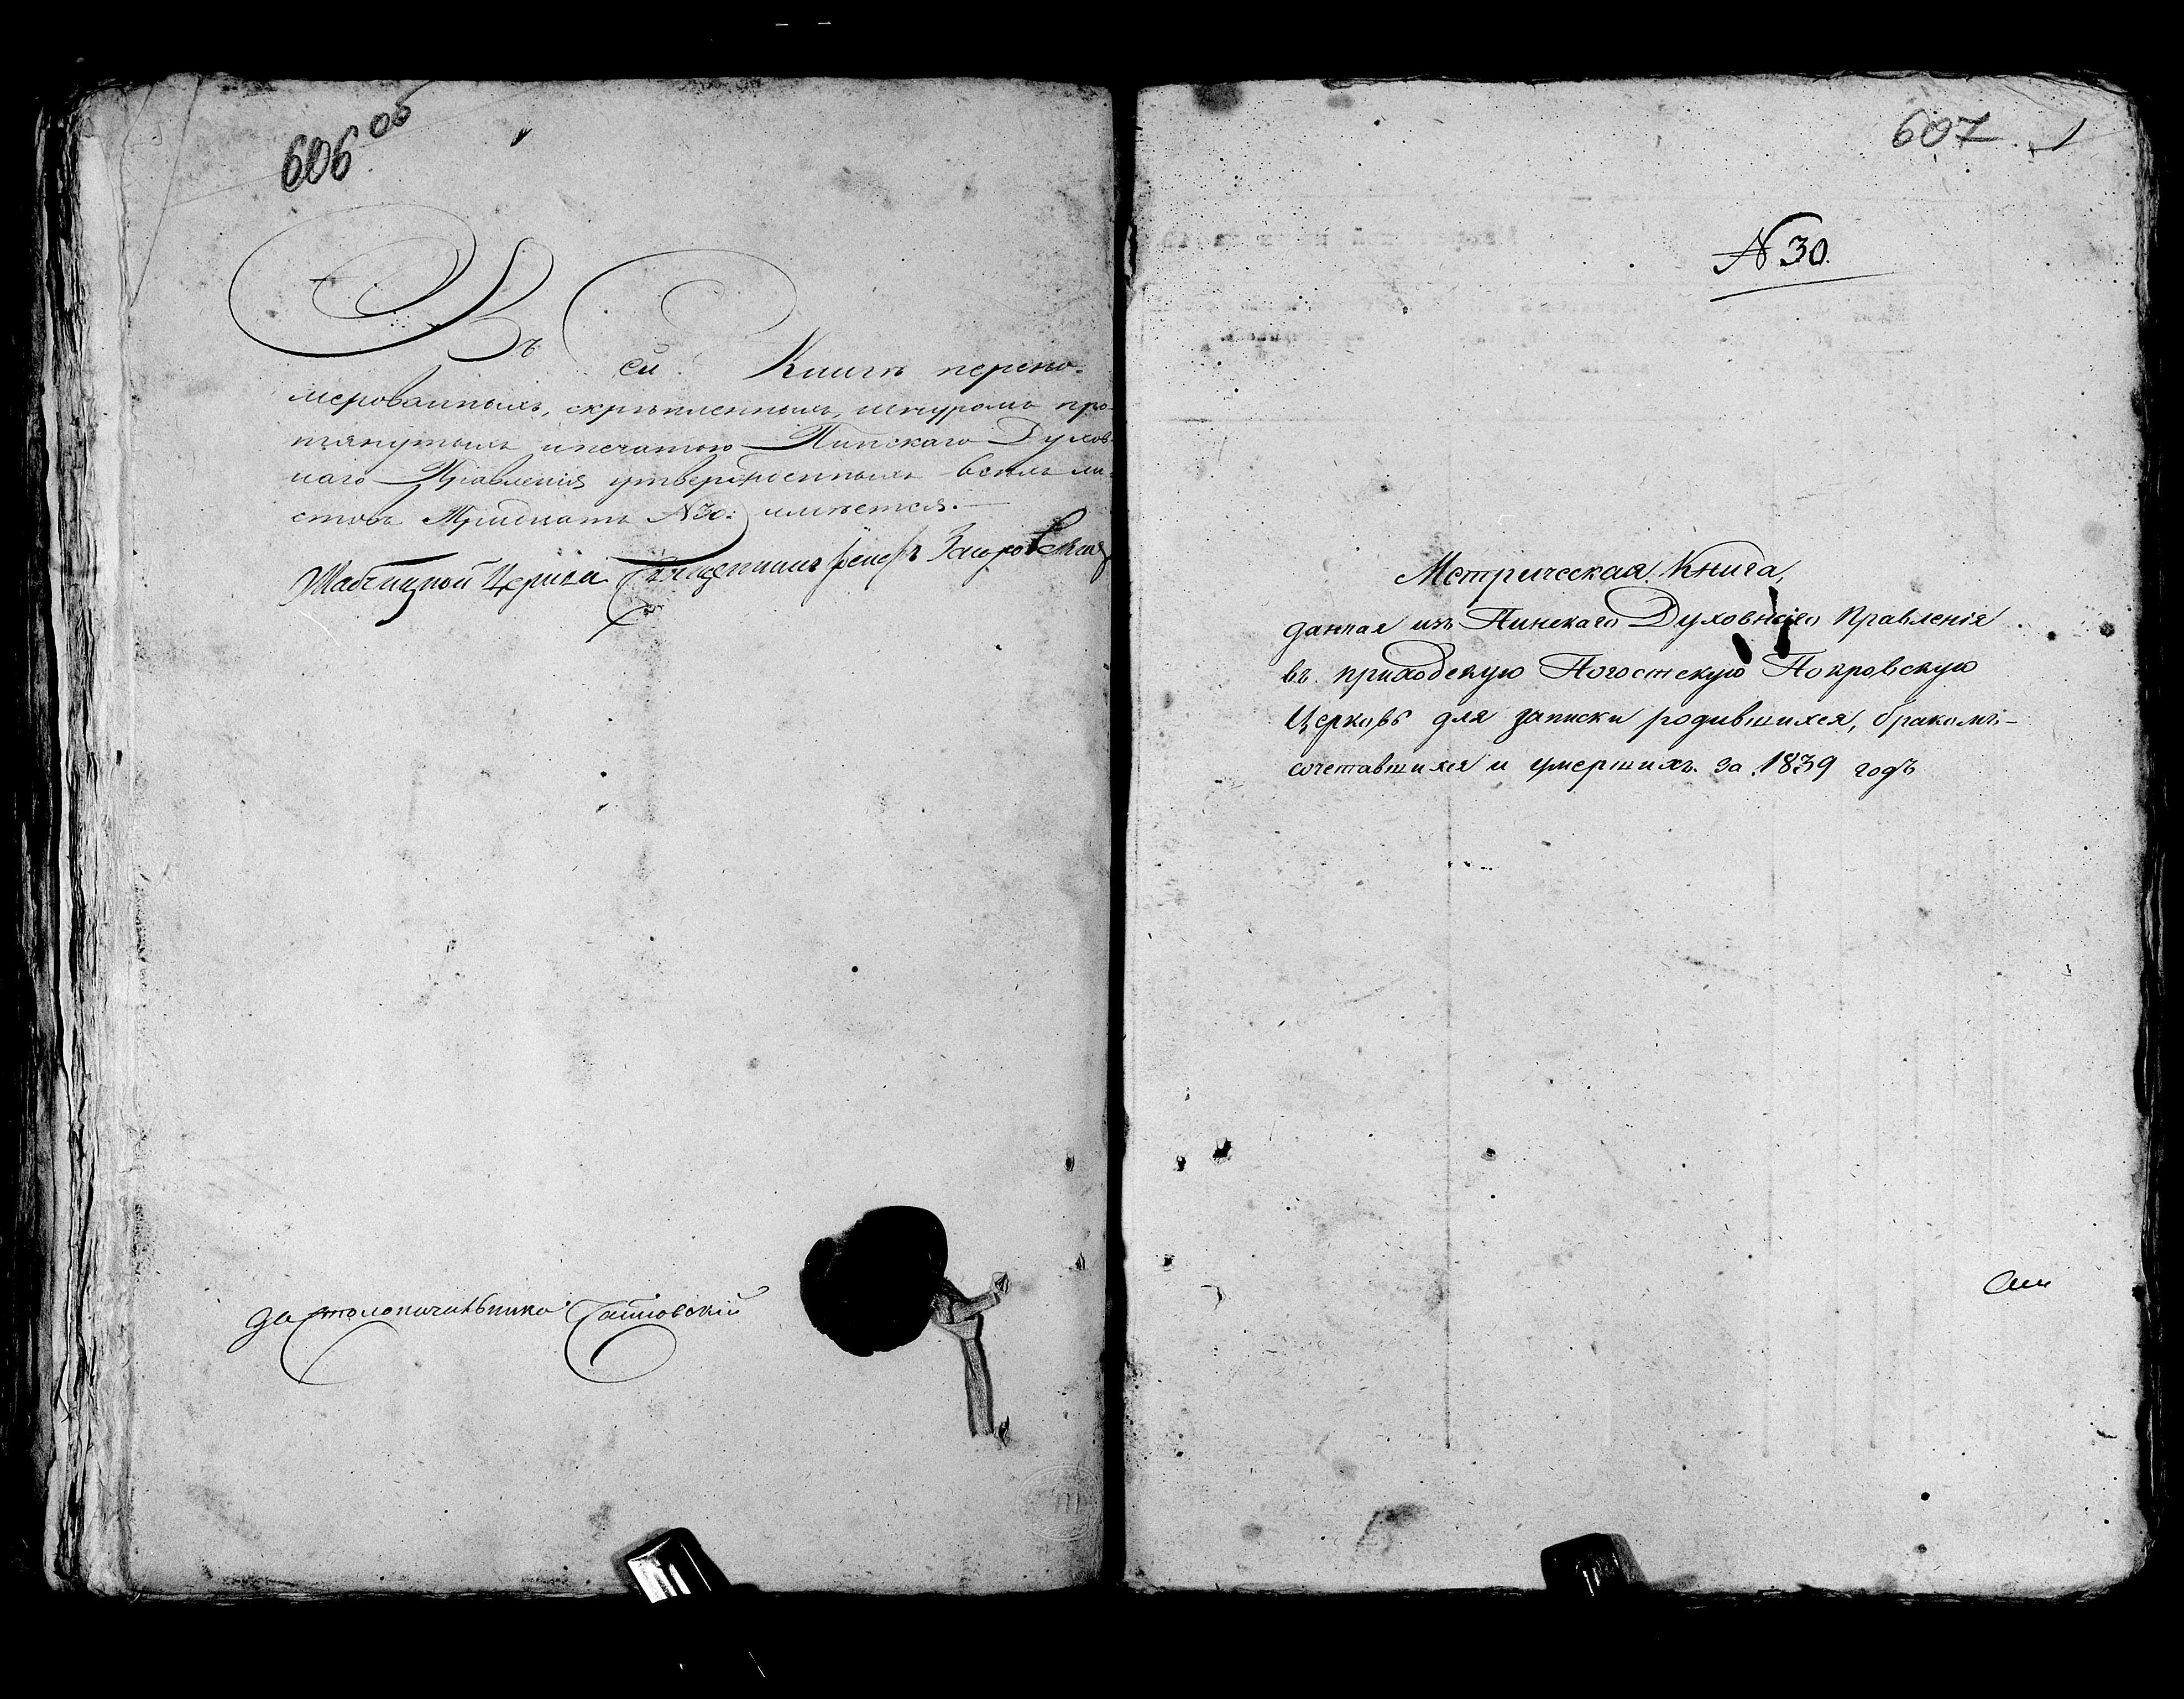 606 об
Въ сей Книгѣ перено-
мерованныхъ, скрѣпленныхъ, шнуромъ про-
тянутыхъ и печатью Пинскаго Духов-
наго Правленія утвержденныхъ всѣхъ ли-
стовъ Тридцать №30: имѣется.
Церкви Священникъ
За столоначальника
607 1
№ 30.
Метрическая Книга,
данная изъ Пинскаго Духовнаго Правленія
въ приходскую Погостскую Покровскую
Церковь для записки родившихся, бракомъ-
сочетавшихся и умершихъ за 1839 годъ